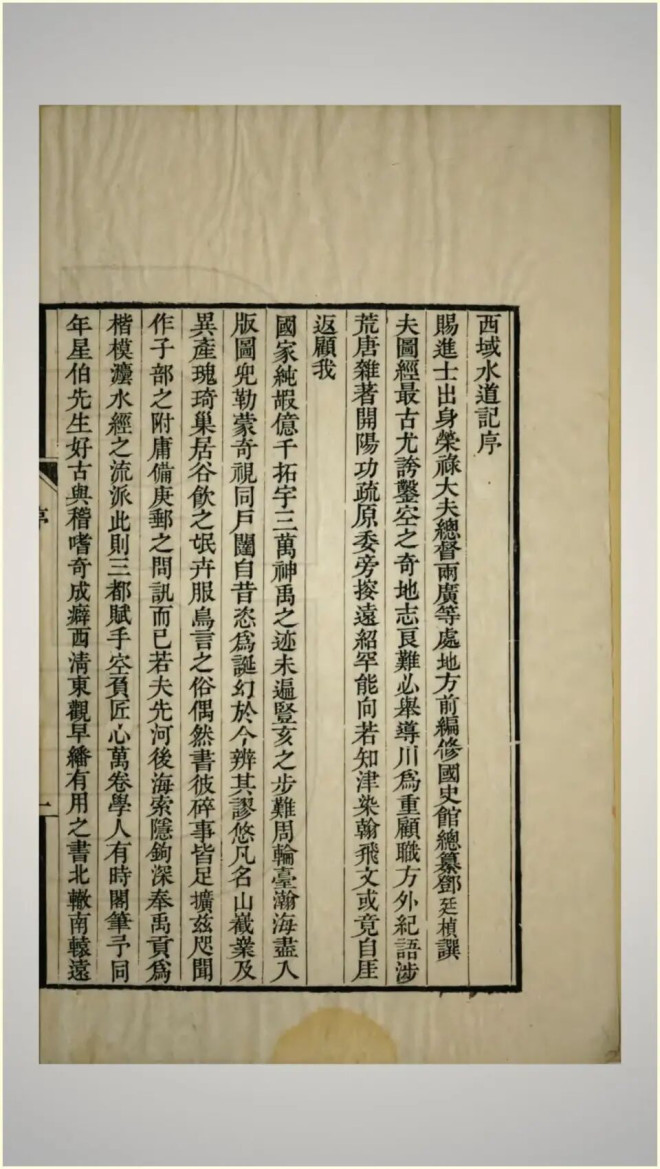 西域水道記序
賜進士出身榮祿大夫總督兩廣等處地方前編修國史館總纂鄧廷楨譔
夫圖經最古尤誇鑿空之奇地志良難必舉導川爲重顧職方外紀語涉
荒唐雜著開陽功疏原委旁搜遠紹罕能向若知津染翰飛文或竟自厓
返顧我
國家純嘏億千拓宇三萬神禹之迹未遍豎亥之步難周輪臺瀚海盡入
版圖兜勒蒙奇視同戶闥自昔恣爲誕幻於今辨其謬悠凡名山嶻業及
異產瑰琦巢居谷飲之氓卉服鳥言之俗偶然書彼碎事皆足擴茲咫聞
作子部之附庸備庚郵之問訊而已若夫先河後海索隱鉤深奉禹貢爲
楷模瀍水經之流派此則三都賦手空頦匠心萬卷學人有時閣筆予同
年星伯先生好古與稽嗜奇成癖西清東觀早繙有用之書北轍南轅遠
序
一